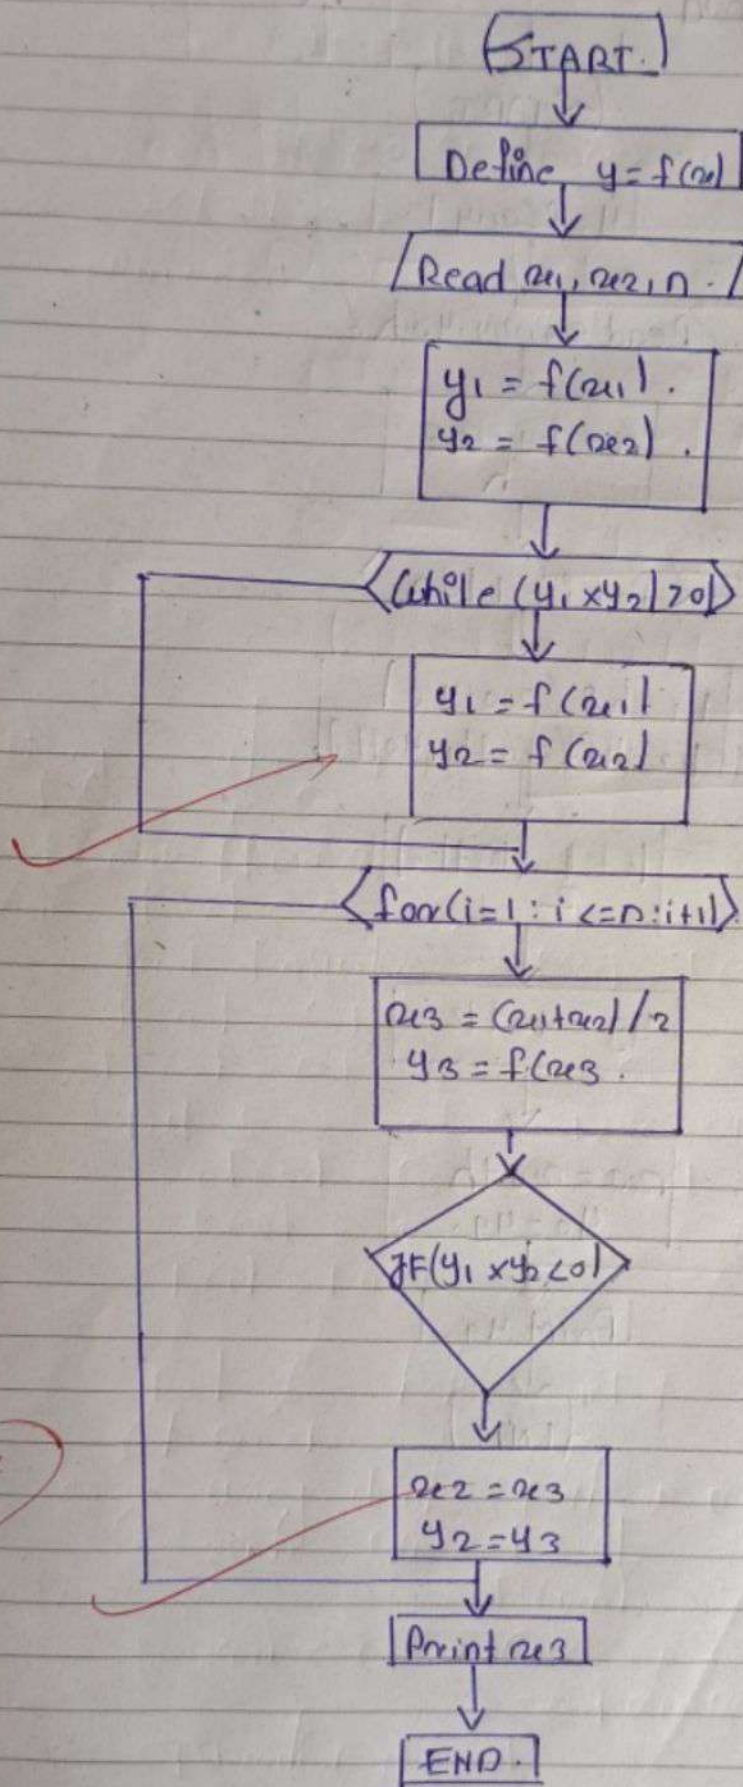 START.
Define y = f(x)
Read x1, x2, n.
y1 = f(x1).
y2 = f(x2).
While (y1 x y2) > 0)
y1 = f(x1)
y2 = f(x2)
for(i=1 : i <= n : i+1)
x3 = (x1+x2) / 2
y3 = f(x3.
IF(y1 x y2 < 0)
x2 = x3
y2 = y3
Print x3
END.